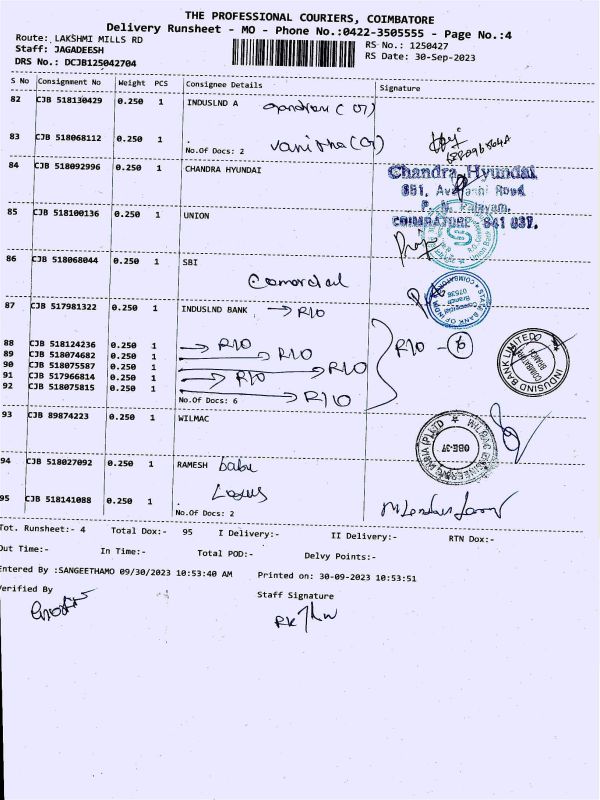 THE PROFESSIONAL COURIERS, COIMBATORE
Delivery Runsheet - MO - Phone No.:0422-3505555 - Page No.:4
Route: LAKSHMI MILLS RD
RS No.: 1250427
Staff: JAGADEESH
RS Date: 30-Sep-2023
DRS No.: DCJB125042704
S No Consignment No Weight PCS Consignee Details Signature
82 CJB 518130429 0.250 1 INDUSLND A
83 CJB 518068112 0.250 1 Vanitha
No.Of Docs: 2
84 CJB 518092996 0.250 1 CHANDRA HYUNDAI
Chandra Hyundai
COIMBATORE 641 037.
85 CJB 518100136 0.250 1 UNION
86 CJB 518068044 0.250 1 SBI
STATE BANK OF INDIA
Commercial Branch
07536
COIMBATORE
87 CJB 517981322 0.250 1 INDUSLND BANK → R10
88 CJB 518124236 0.250 1 → R10
89 CJB 518074682 0.250 1 → R10
90 CJB 518075587 0.250 1 → R10
91 CJB 517966814 0.250 1 → R10
92 CJB 518075815 0.250 1 → R10
No.Of Docs: 6
R10 - 6
INDUSIND BANK LIMITED
COIMBATORE
BRANCH
93 CJB 89874223 0.250 1 WILMAC
94 CJB 518027092 0.250 1 RAMESH babu
95 CJB 518141088 0.250 1
No.Of Docs: 2
Tot. Runsheet:- 4 Total Dox:- 95 I Delivery:- II Delivery:- RTN Dox:-
Out Time:- In Time:- Total POD:- Delvy Points:-
Entered By :SANGEETHAMO 09/30/2023 10:53:40 AM Printed on: 30-09-2023 10:53:51
Verified By
Staff Signature